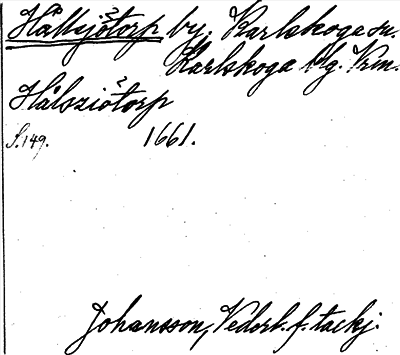 Hållsjötorp by, Karlskoga sn.
Karlskoga bg. Vrm.
Hålsziötorp
S. 149. 1661.
Johansson, Vedorl. f. tackj.